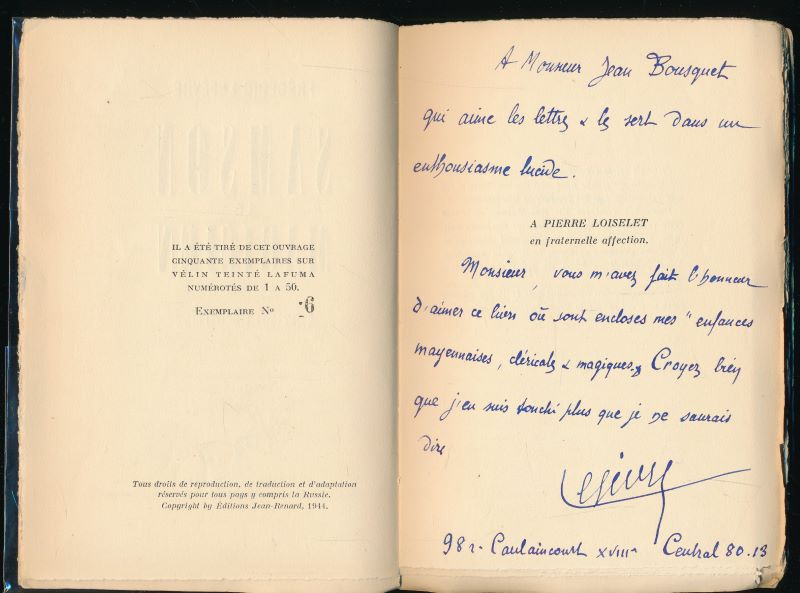 IL A ÉTÉ TIRÉ DE CET OUVRAGE
CINQUANTE EXEMPLAIRES SUR
VÉLIN TEINTÉ LAFUMA
NUMÉROTÉS DE 1 A 50.
EXEMPLAIRE No 6
Tous droits de reproduction, de traduction et d'adaptation
réservés pour tous pays y compris la Russie.
Copyright by Éditions Jean-Renard, 1944.
A Monsieur Jean Bousquet
qui aime les lettres & les sert dans un
enthousiasme lucide.
A PIERRE LOISELET
en fraternelle affection.
Monsieur, vous m'avez fait l'honneur
d'aimer ce lien où sont encloses mes "enfances
mayennaises, cléricales & magiques". Croyez bien
que j'en suis touché plus que je ne saurais
dire
98 r. Caulaincourt XVIIIe Central 80.13